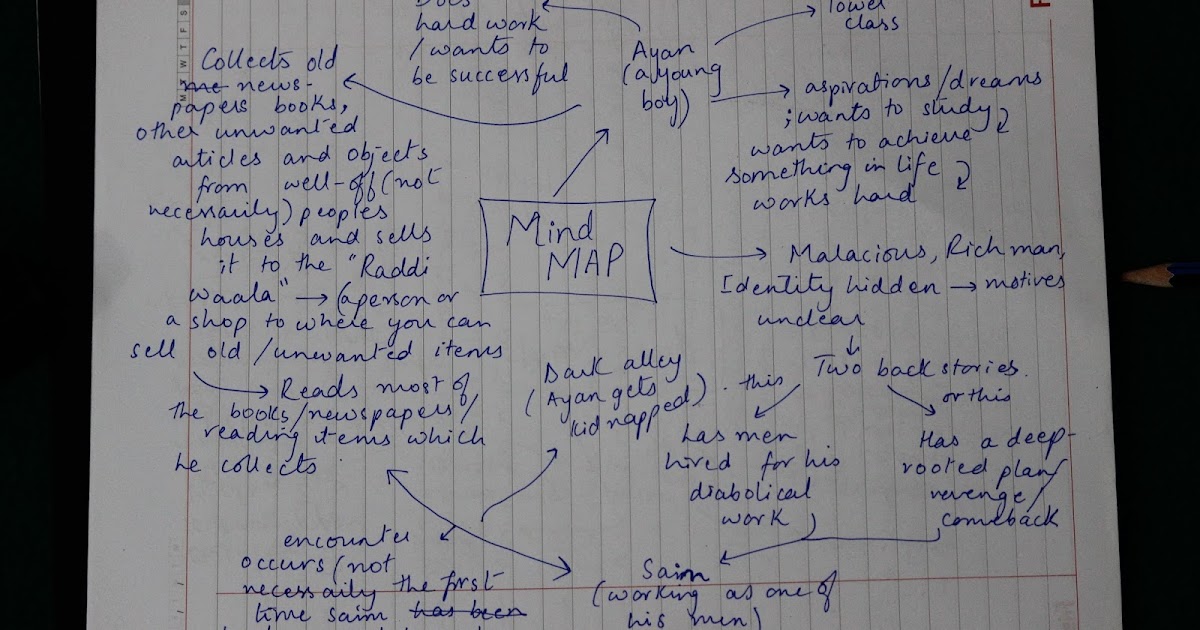 Does
hard work
/wants to
be successful
Ayan
(a young
boy)
lower
class
aspirations/dreams
; wants to study
wants to achieve
something in life
works hard
Collects old
me news-
papers books,
other unwanted
articles and objects
from well-off (not
necessarily) peoples
houses and sells
it to the "Raddi
waala" → (a person or
a shop to where you can
sell old/unwanted items
→ Reads most of
the books/newspapers/
reading items which
he collects
Mind
MAP
Malacious, Rich man,
Identity hidden → motives
unclear
Two back stories.
this
or this
has men
hired for his
diabolical
work
Has a deep-
rooted plan/
revenge/
comeback
Dark alley
(Ayan gets
kidnapped).
encounter
occurs (not
necessarily the first
time saim has been
Saim
(working as one of
his men)
M T W T F S